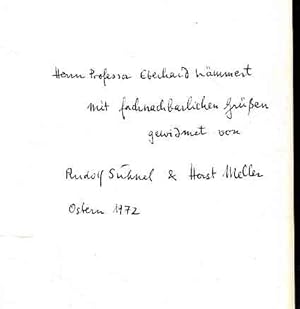 Herrn Professor Eberhard Lämmert
mit fachnachbarlichen Grüßen
gewidmet von
Rudolf Sühnel & Horst Meller
Ostern 1972